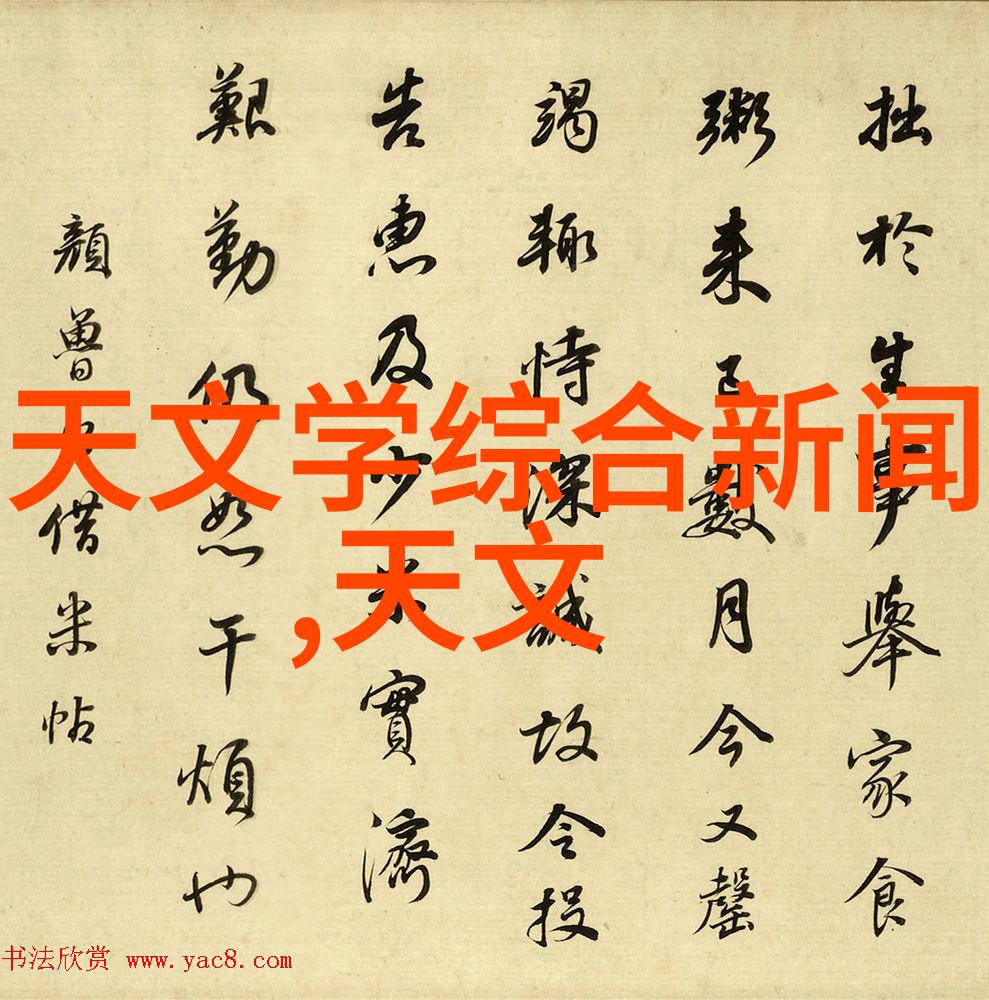 拙於生事舉家食
粥来已數月今又罄
竭輙恃深誠故令投
告惠及少米實濟
艱勤仍恕干煩也
顏魯公借米帖
天文学综合新闻
,天文
书法欣赏 www.yac8.com